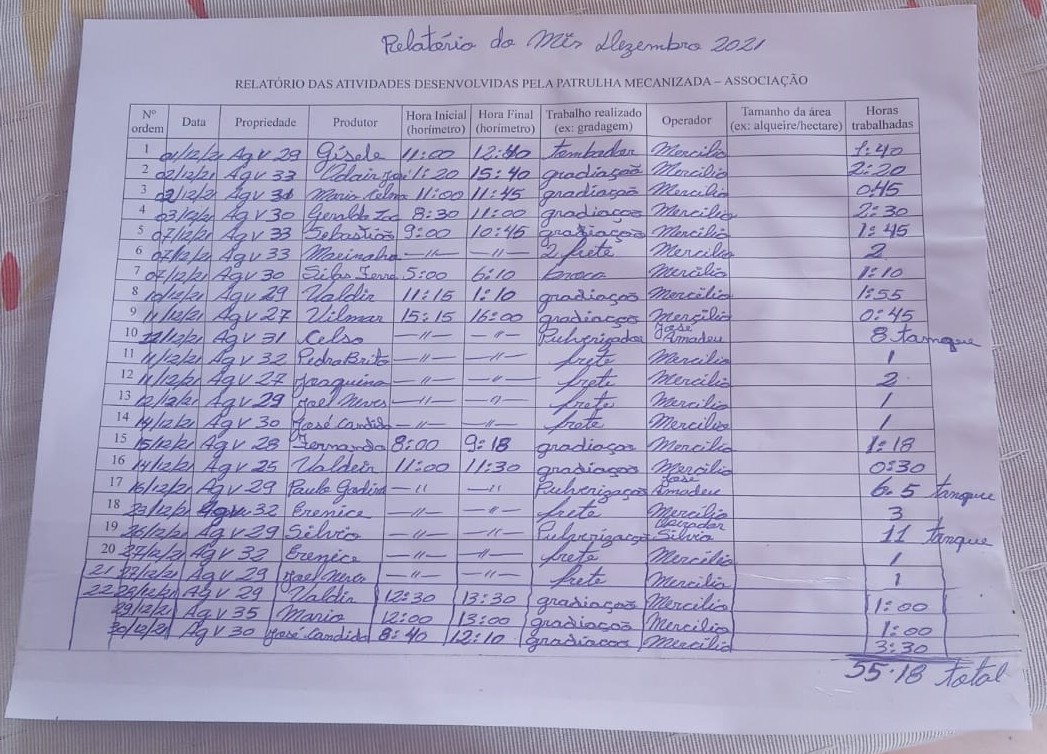 Relatório do Mês Dezembro 2021
RELATÓRIO DAS ATIVIDADES DESENVOLVIDAS PELA PATRULHA MECANIZADA – ASSOCIAÇÃO
Nº ordem Data Propriedade Produtor Hora Inicial (horímetro) Hora Final (horímetro) Trabalho realizado (ex: gradagem) Operador Tamanho da área (ex: alqueire/hectare) Horas trabalhadas
1 01/12/21 Ag V 29 Gisele 11:00 12:40 tombador Mercilio 1:40
2 02/12/21 Ag V 33 1:20 15:40 gradiação Mercilio 2:20
3 02/12/21 Ag V 31 Maria Celma 11:00 11:45 gradiação Mercilio 0:45
4 03/12/21 Ag V 30 Geraldo 8:30 11:00 gradiação Mercilio 2:30
5 07/12/21 Ag V 33 Sebastião 9:00 10:45 gradiação Mercilio 1:45
6 07/12/21 Ag V 33 Marinalva —〃— —〃— 2 frete Mercilio 2
7 07/12/21 Ag V 30 Silas 5:00 6:10 broca Mercilio 1:10
8 10/12/21 Ag V 29 Valdir 11:15 1:10 gradiação Mercilio 1:55
9 11/12/21 Ag V 27 Vilmar 15:15 16:00 gradiação Mercilio 0:45
10 /12/21 Ag V 31 Celso —〃— —〃— Pulverizador José Amadeu 8 tanque
11 11/12/21 Ag V 32 Pedro Brito —〃— —〃— frete Mercilio 1
12 11/12/21 Ag V 27 Joaquina —〃— —〃— frete Mercilio 2
13 12/12/21 Ag V 29 Joel Neves —〃— —〃— frete Mercilio 1
14 14/12/21 Ag V 30 José Candido —〃— —〃— frete Mercilio 1
15 15/12/21 Ag V 28 Fernando 8:00 9:18 gradiação Mercilio 1:18
16 14/12/21 Ag V 25 Valdeir 11:00 11:30 gradiação Mercilio 0:30
17 16/12/21 Ag V 29 Paulo —〃 —〃— Pulverização José Amadeu 6.5 tanque
18 23/12/21 Ag V 32 Erenice —〃— —〃— frete Mercilio 3
19 26/12/21 Ag V 29 Silvio —〃— —〃— Pulverização Operador Silvio 11 tanque
20 27/12/21 Ag V 32 Erenice —〃— —〃— frete Mercilio 1
21 27/12/21 Ag V 29 Joel Neves —〃— —〃— frete Mercilio 1
22 28/12/21 Ag V 29 Valdir 12:30 13:30 gradiação Mercilio 1:00
29/12/21 Ag V 35 Mario 12:00 13:00 gradiação Mercilio 1:00
30/12/21 Ag V 30 José Candido 8:40 12:10 gradiação Mercilio 3:30
55:18 total